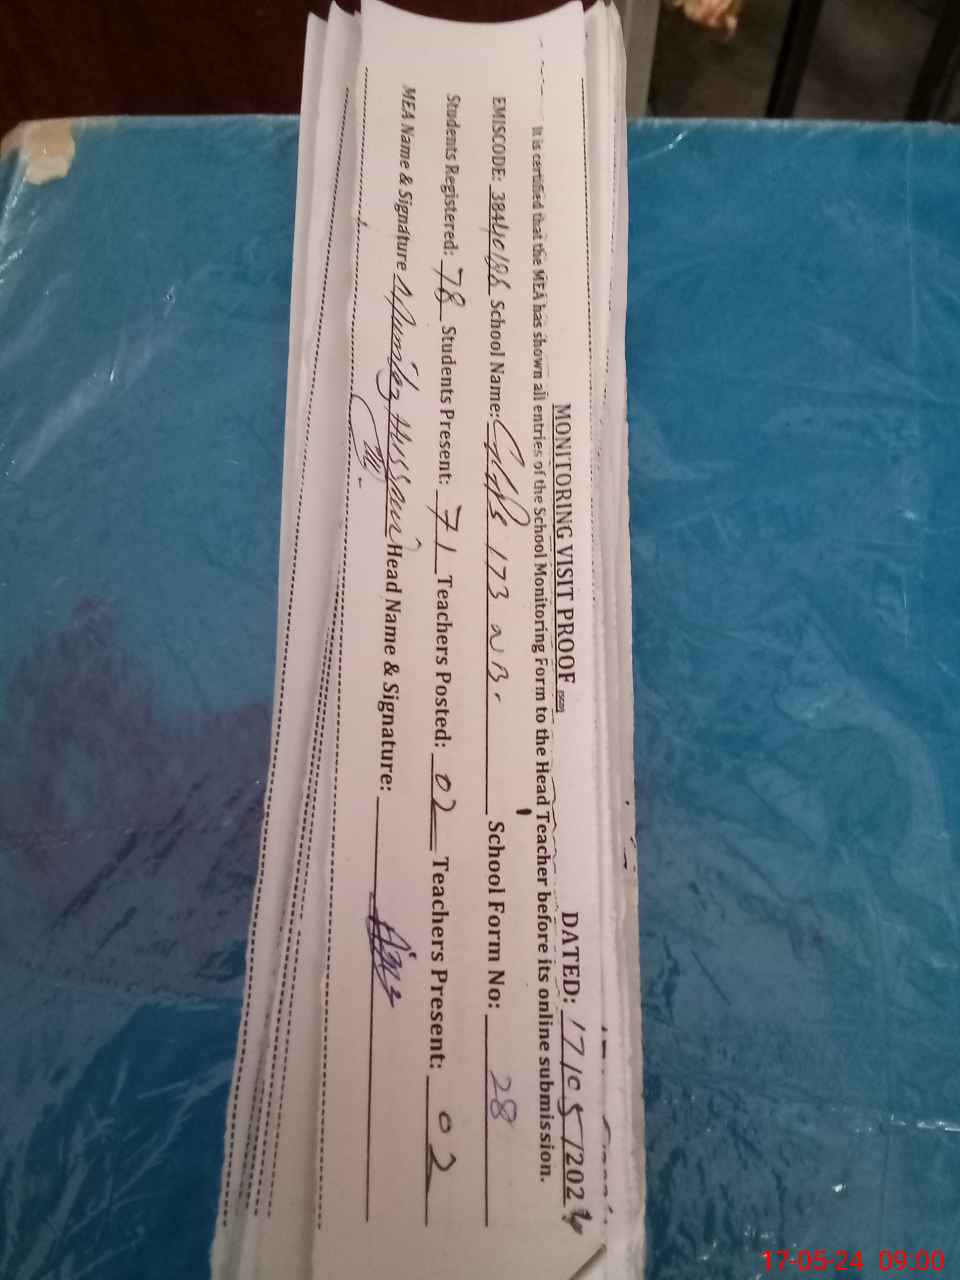 MONITORING VISIT PROOF (SED) DATED: 17/05/2024
It is certified that the MEA has shown all entries of the School Monitoring Form to the Head Teacher before its online submission.
EMISCODE: 38440186 School Name: GGPS 173 NB. School Form No: 28
Students Registered: 78 Students Present: 71 Teachers Posted: 02 Teachers Present: 02
MEA Name & Signature Hussain Head Name & Signature:
17-05-24 09:00